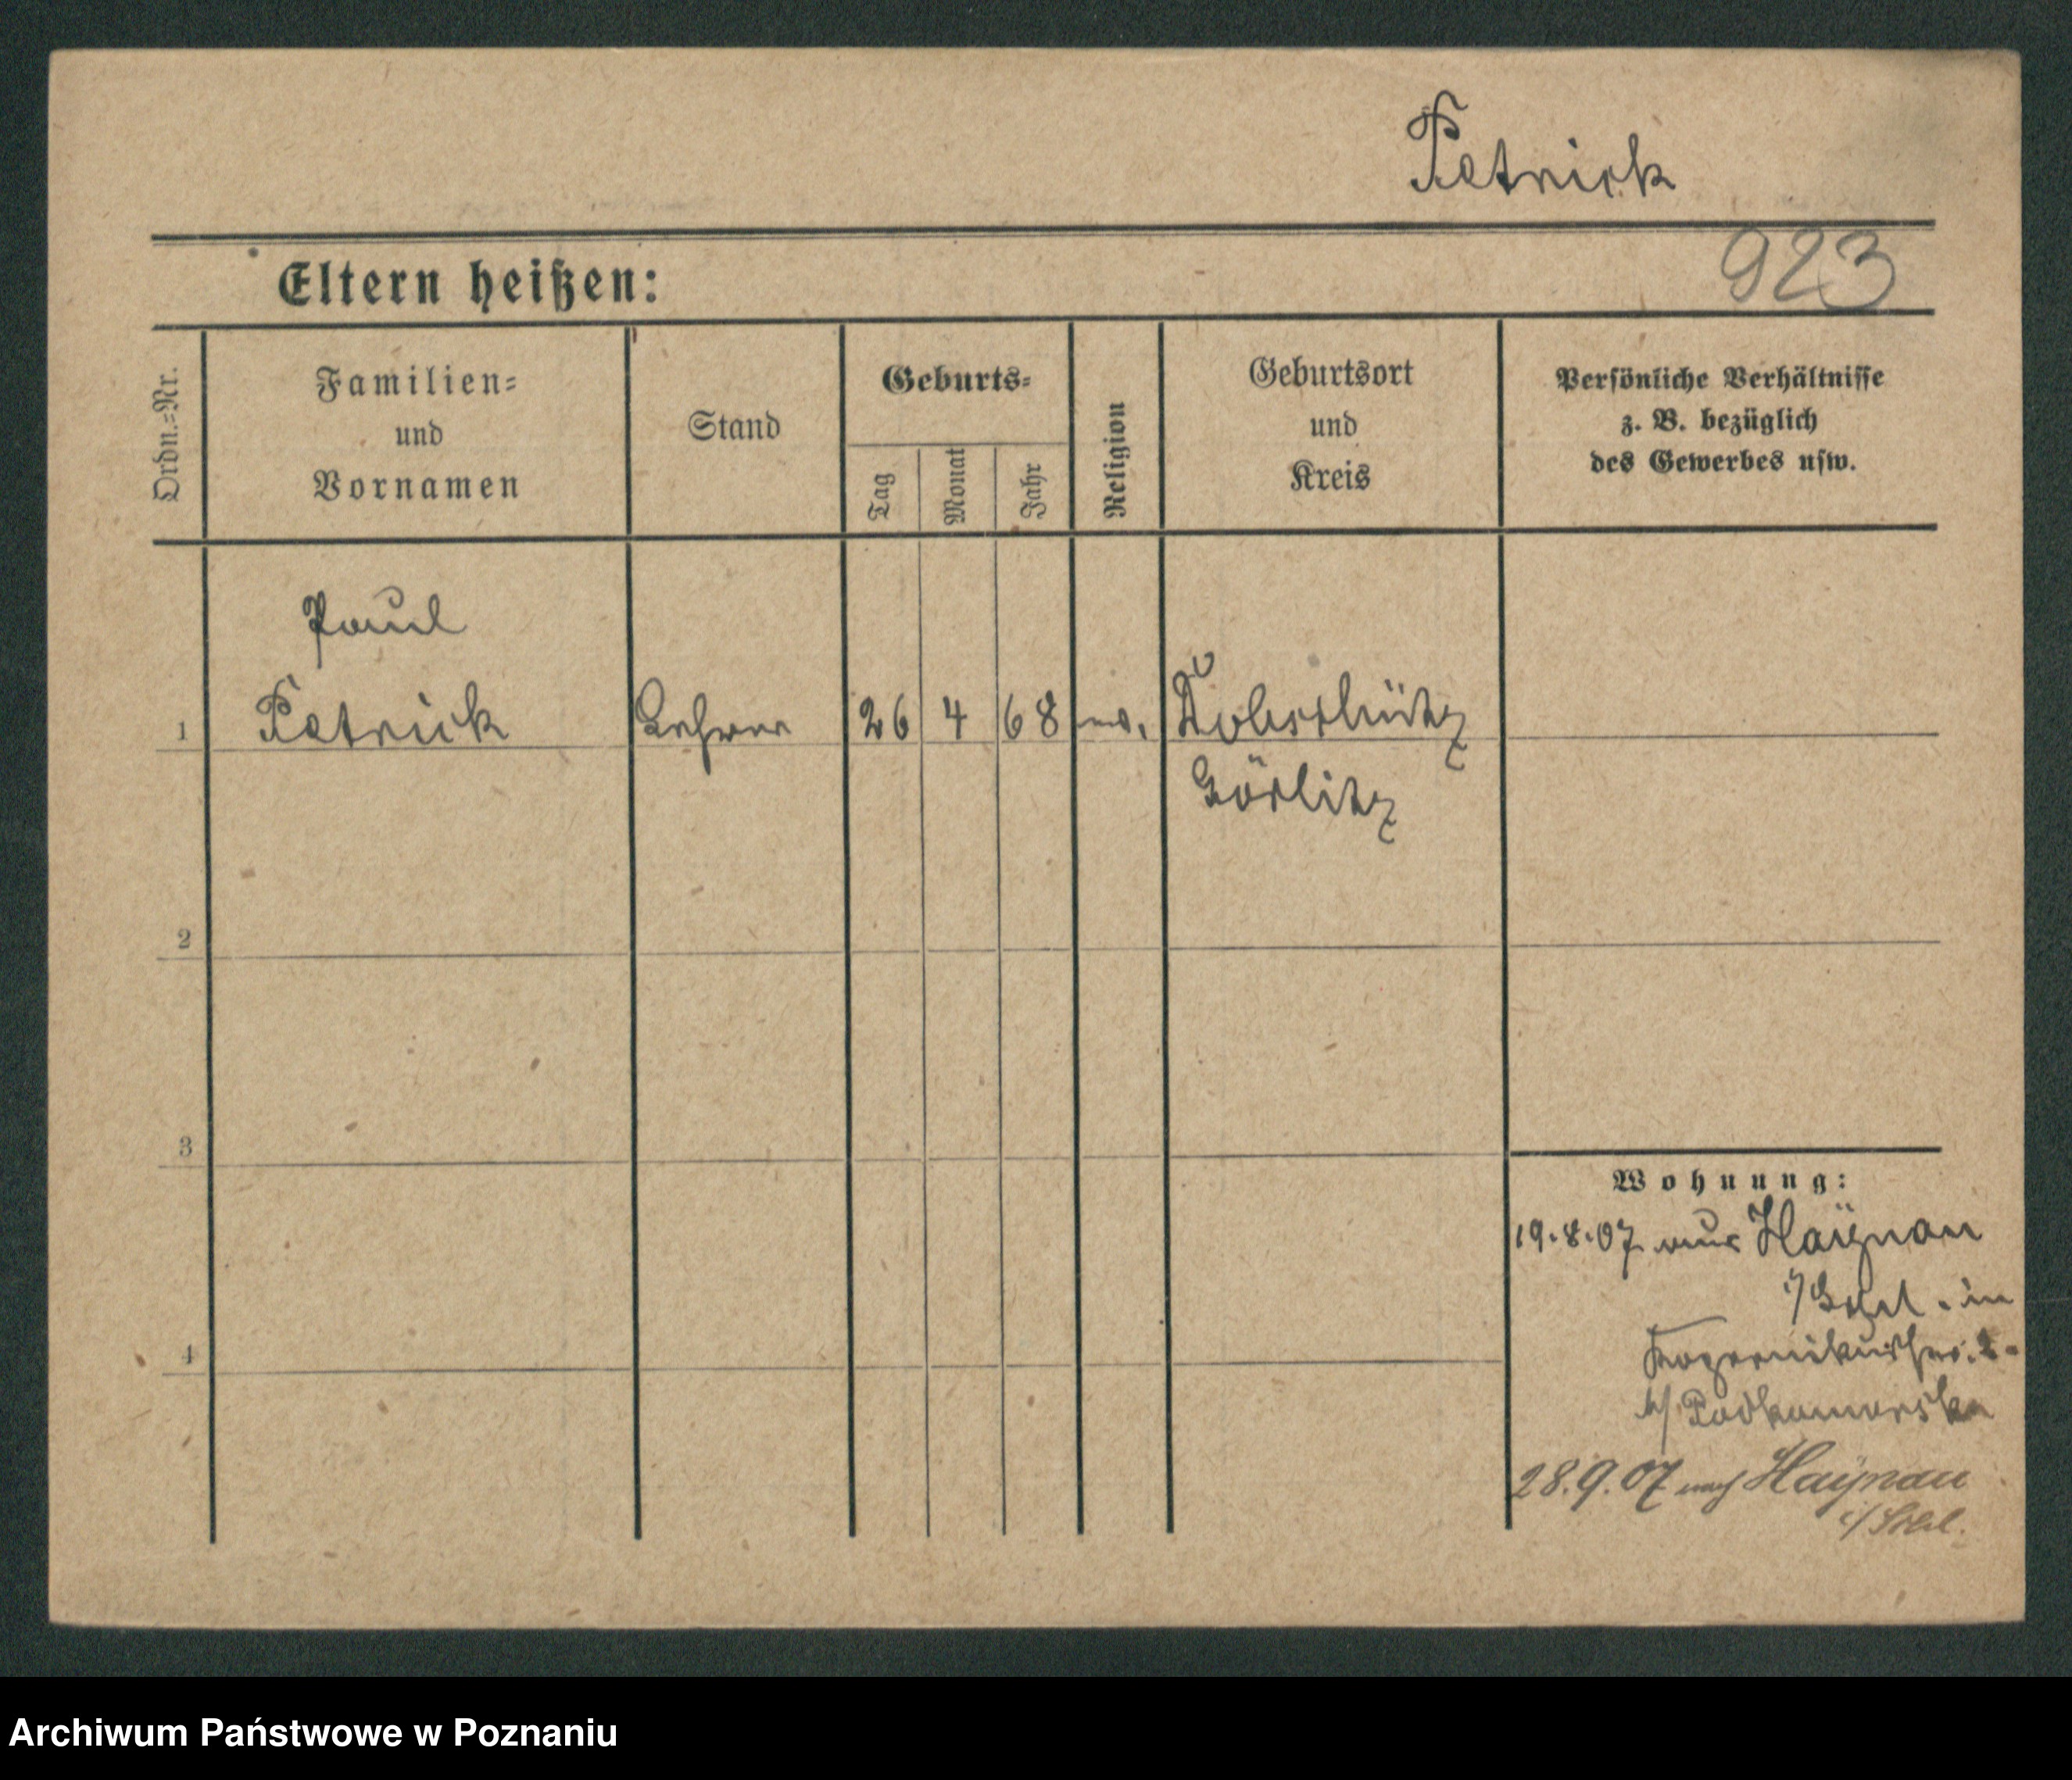 Petrick
923
Eltern heißen:
Ordn.=Nr.
Familien= und Vornamen
Stand
Geburts=
Tag
Monat
Jahr
Religion
Geburtsort und Kreis
Persönliche Verhältnisse z. B. bezüglich des Gewerbes usw.
Paul
1 Petrick Lehrer 26 4 68 ev.
Görlitz
2
3
4
Wohnung:
19.8.07 aus Haynau
i/Schl. in
b/ Podkomorska
28.9.07 nach Haynau
i/Schl.
Archiwum Państwowe w Poznaniu